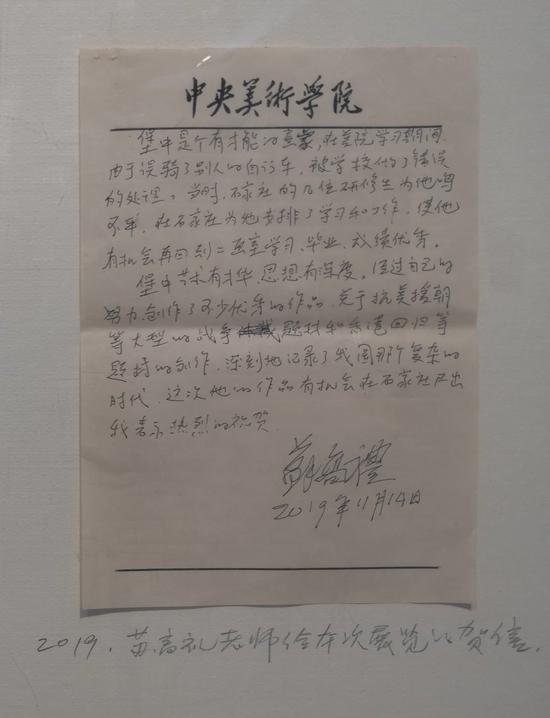 中央美術学院
堡中是个有才能的画家,在美院学习期间
由于误骑了别人的自行车,被学校作了错误
的处理。当时,石家庄的几位研修生为他鸣
不平,在石家庄为他安排了学习和工作,使他
有机会再回到二画室学习,毕业,成绩优秀。
堡中艺术有才华,思想有深度,通过自己的
努力,创作了不少优秀的作品,关于抗美援朝
等大型的战争题材和香港回归等
题材的创作,深刻地记录了我国那个复杂的
时代,这次他的作品有机会在石家庄展出
我表示热烈的祝贺
蘇高禮
2019年11月14日
2019.苏高礼老师给本次展览的贺信.